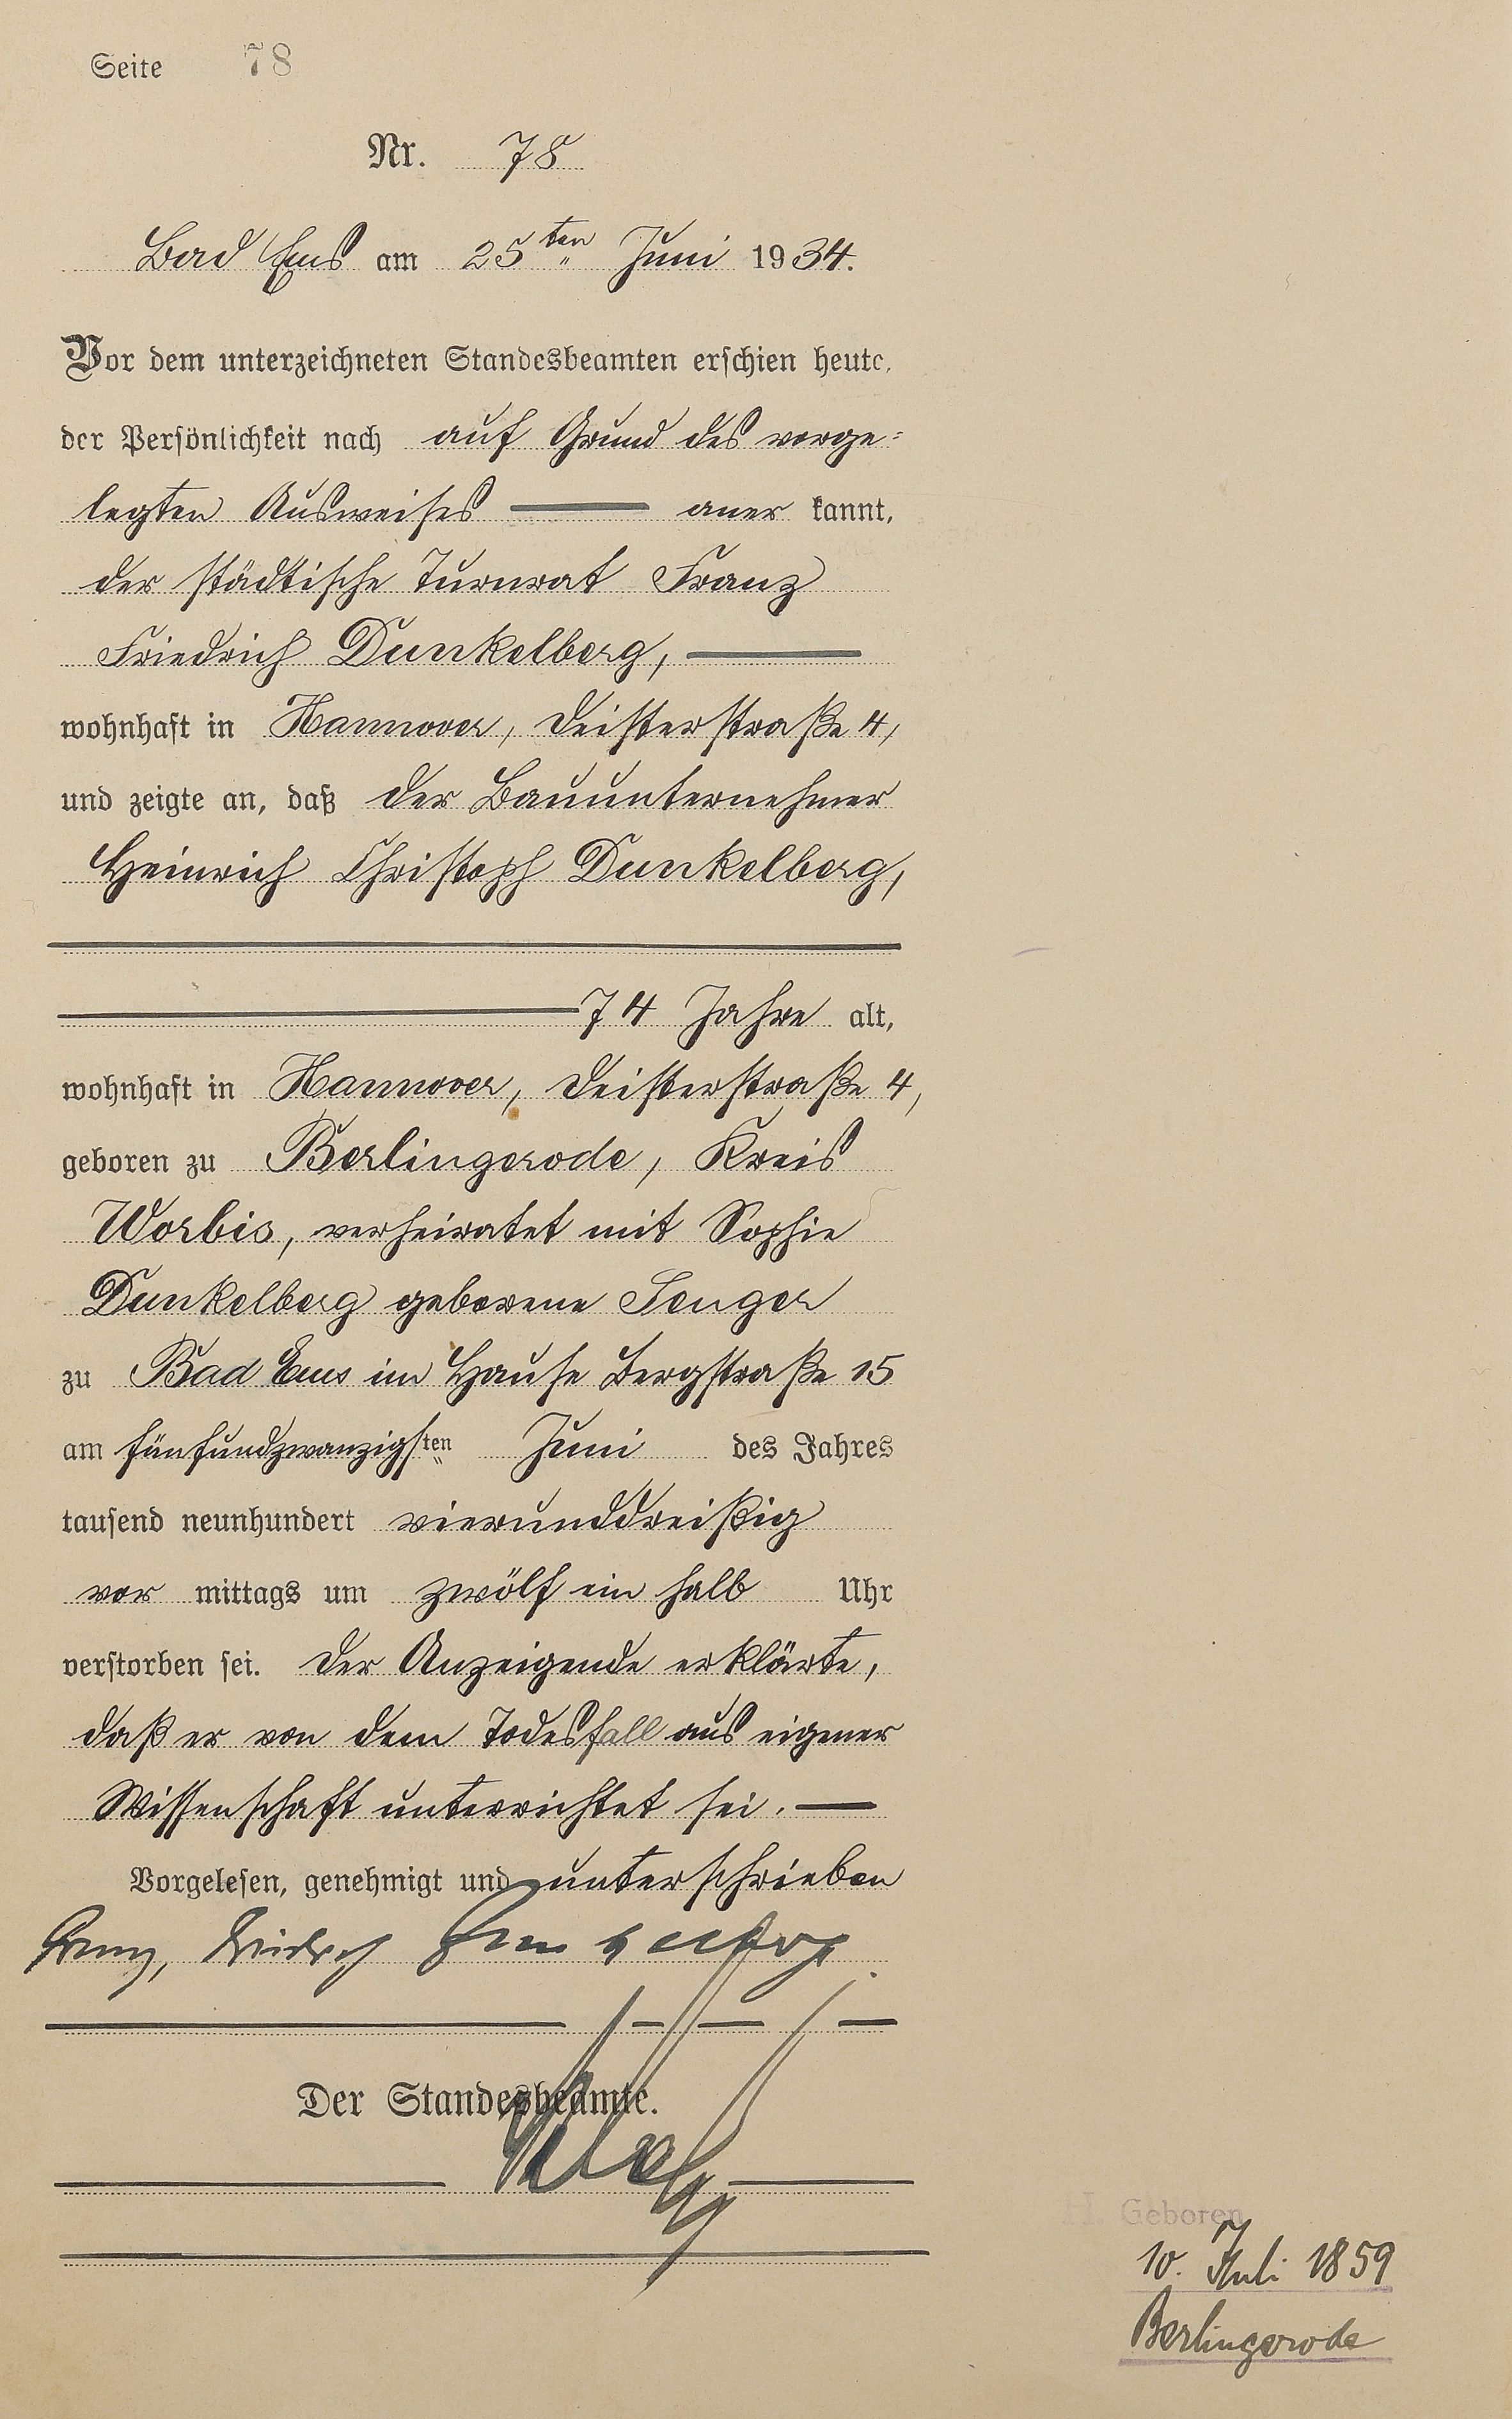 Seite 78
Nr. 78
Bad Ems am 25ten Juni 1934.
Vor dem unterzeichneten Standesbeamten erschien heute,
der Persönlichkeit nach auf Grund des vorge-
legten Ausweises aner kannt,
der städtische Turnrat Franz
Friedrich Dunkelberg,
wohnhaft in Hannover, Deisterstraße 4,
und zeigte an, daß der Bauunternehmer
Heinrich Christoph Dunkelberg,
74 Jahre alt,
wohnhaft in Hannover, Deisterstraße 4,
geboren zu Berlingerode, Kreis
Worbis, verheiratet mit Sophie
Dunkelberg geborene Senger
zu Bad Ems im Hause Bergstraße 15
am fünfundzwanzigsten Juni des Jahres
tausend neunhundert vierunddreißig
vor mittags um zwölf ein halb Uhr
verstorben sei. Der Anzeigende erklärte,
daß er von dem Todesfall aus eigener
Wissenschaft unterrichtet sei.
Vorgelesen, genehmigt und unterschrieben
Franz, Friedrich Dunkelberg.
Der Standesbeamte.
H. Geboren
10. Juli 1859
Berlingerode